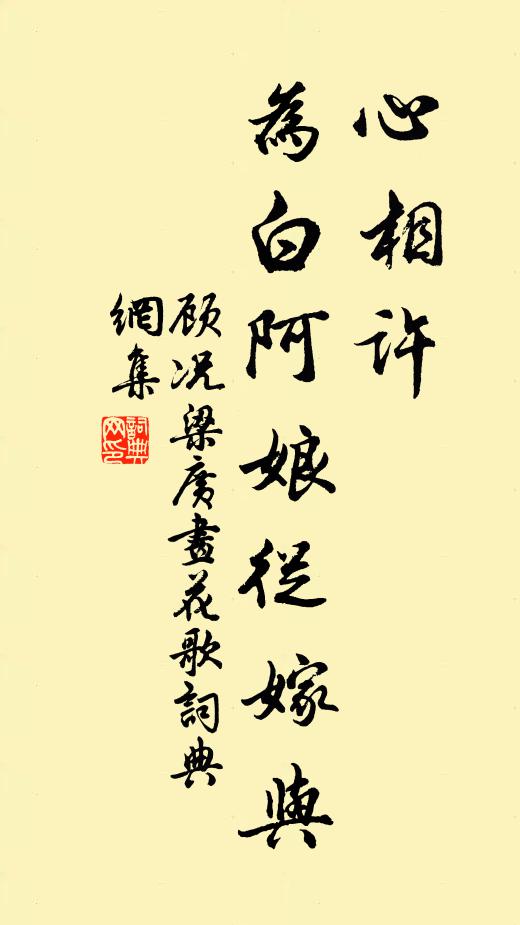 心相许
為白阿娘從嫁與
顾况梁廣畫花歌詞典
網集
詞典
网印